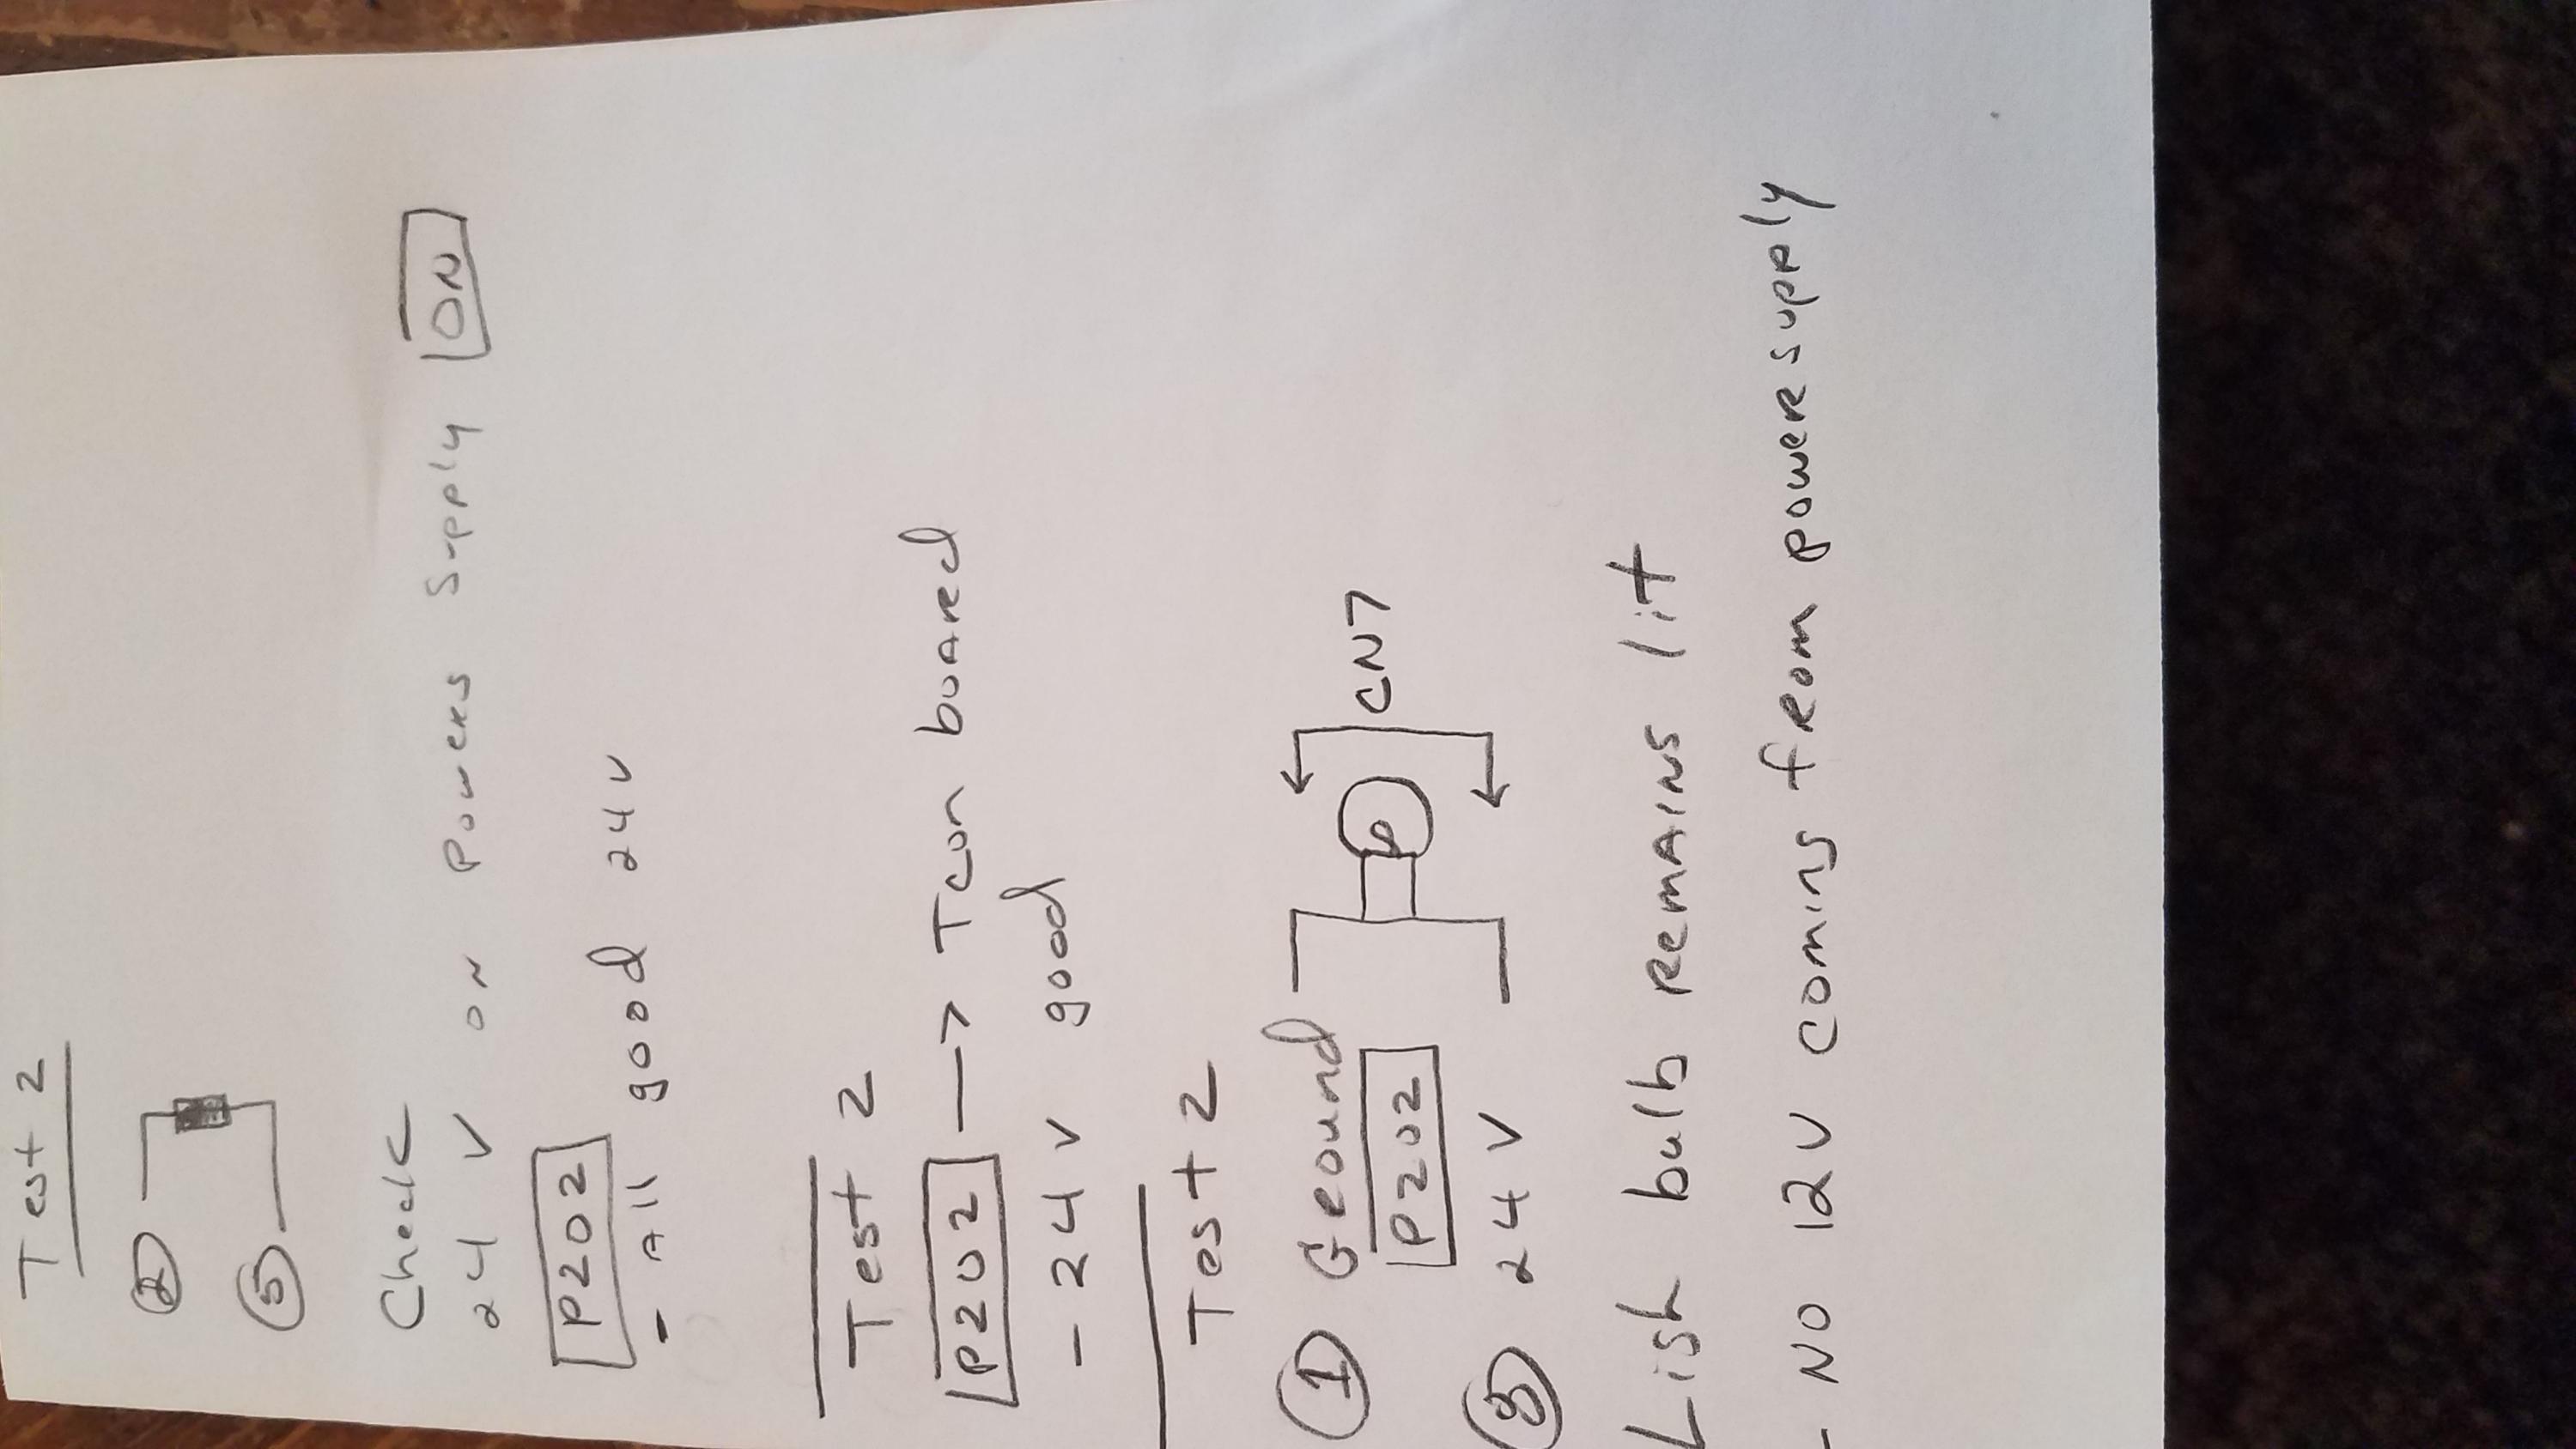 Test 2
2
5
Check
24 V on Powers Supply ON
P202
- All good 24v
Test 2
P202 → Tcon board
- 24v good
Test 2
1 Ground CN7
P202
24 V
Lish bulb remains lit
- NO 12v coming from power supply